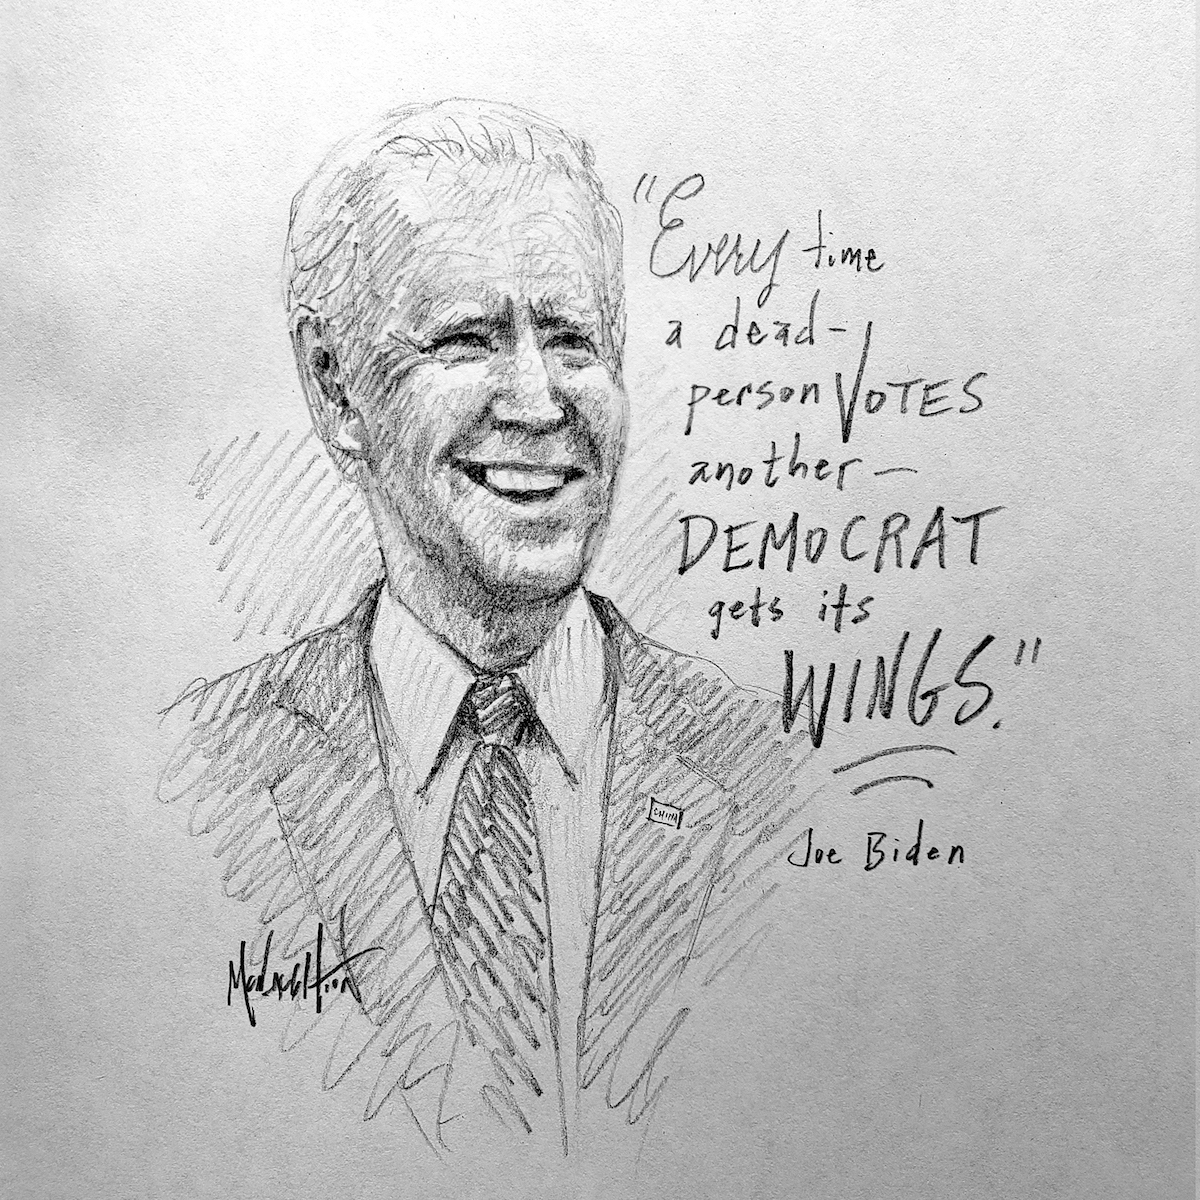 "Every time
a dead-
person VOTES
another-
DEMOCRAT
gets its
WINGS."
Joe Biden